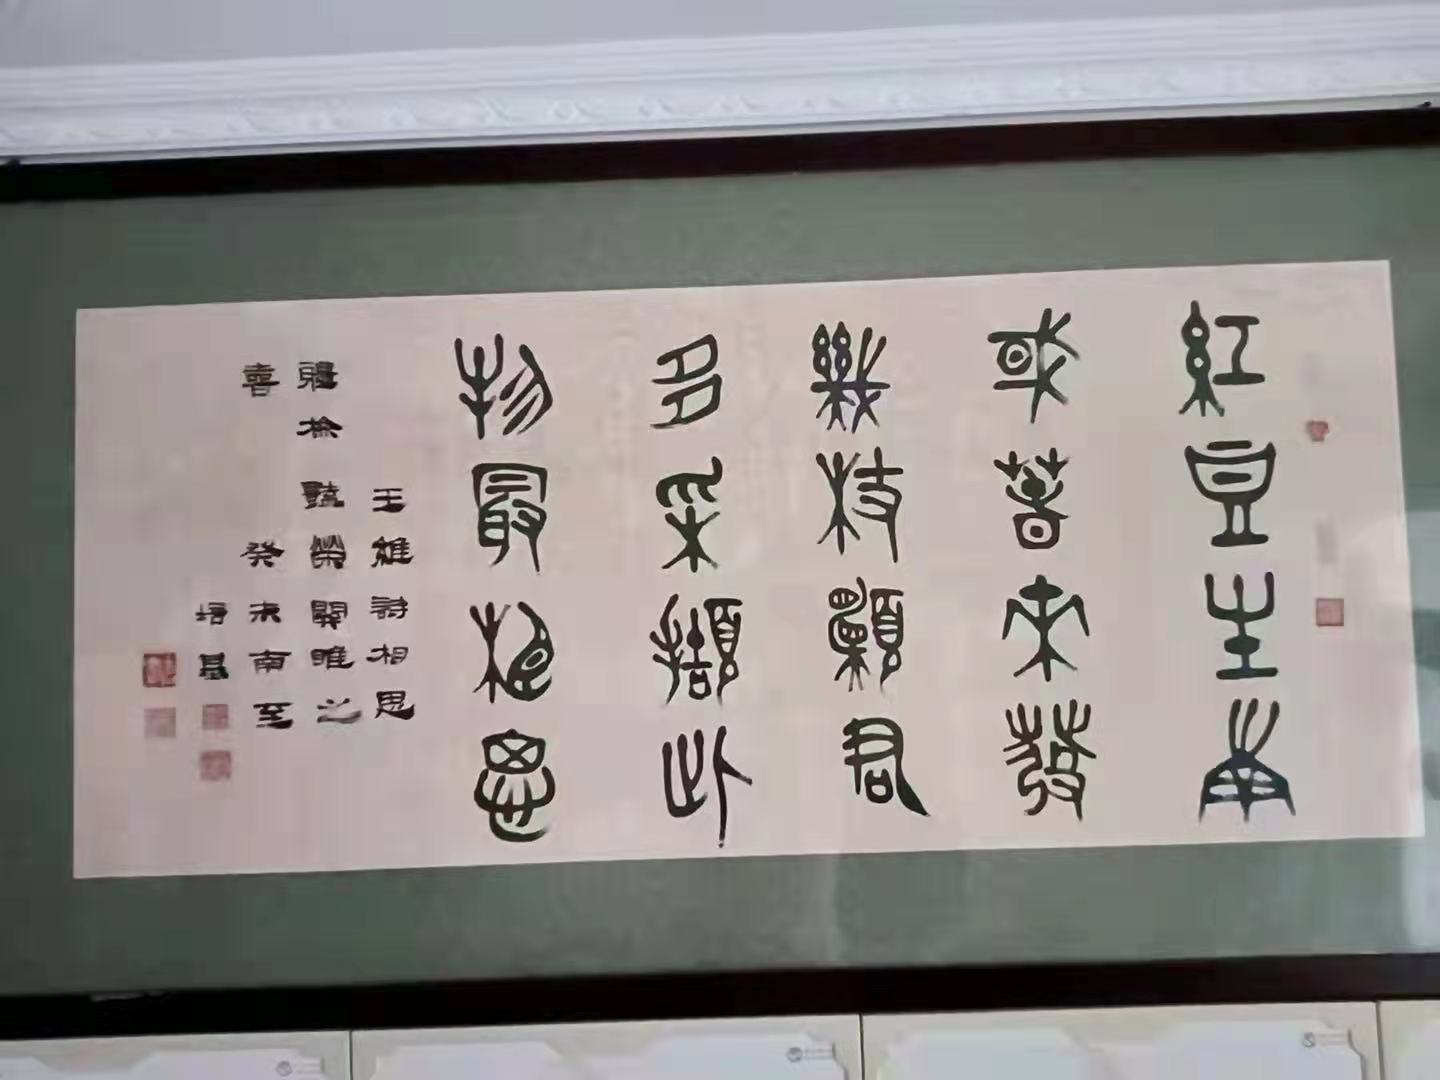 紅豆生南
或春來發
幾枝願君
多采擷此
物最相思
王維詩相思
榮關雎之
喜 癸未南至
培基